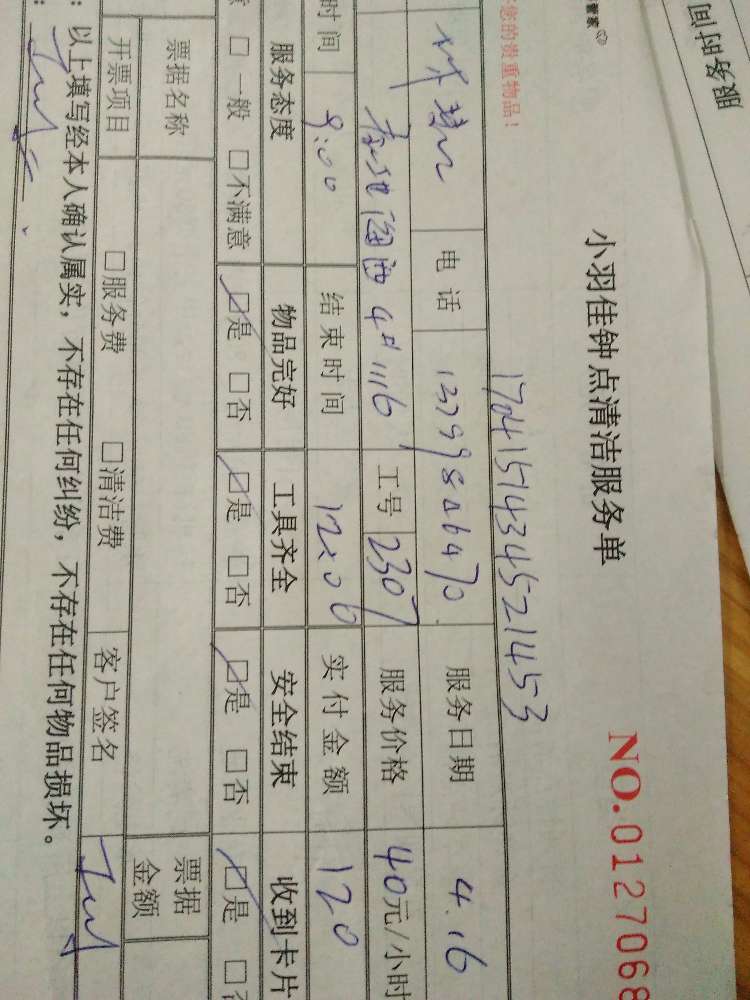 服务时间
管家
您的贵重物品！
小羽佳钟点清洁服务单
NO.0127068
1704157434521453
电话 13799806470 服务日期 4.16
4#1116 工号 2307 服务价格 40元/小时
时间 9:00 结束时间 12:00 实付金额 120
服务态度 物品完好 工具齐全 安全结束 收到卡片
□一般 □不满意 ☑是 □否 ☑是 □否 ☑是 □否 ☑是 □否
票据名称 票据金额
开票项目 □服务费 □清洁费 客户签名
以上填写经本人确认属实，不存在任何纠纷，不存在任何物品损坏。